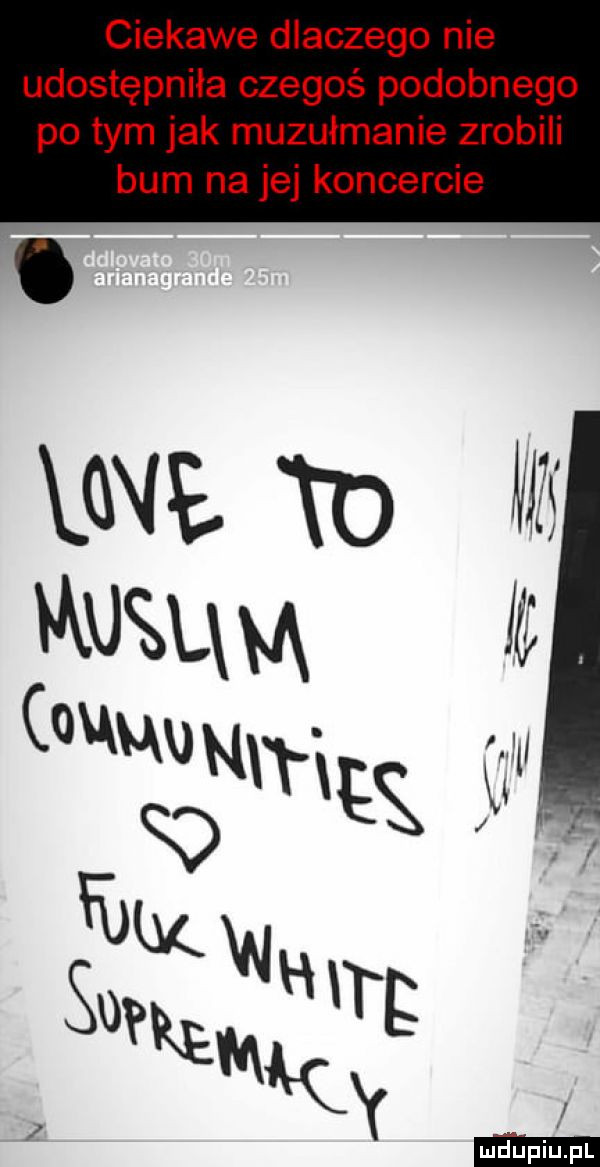 Ciekawe dlaczego nie
udostępniła czegoś podobnego
po tym jak muzułmanie zrobili
bum na jej koncercie
ddlovato 30m
arianagrande 25m
LOVE TO
MUSLIM
COMMUNITIES
FUCK WHITE
SUPREMACY
NAZIS
ARE
SCUM
mdupiu.pl